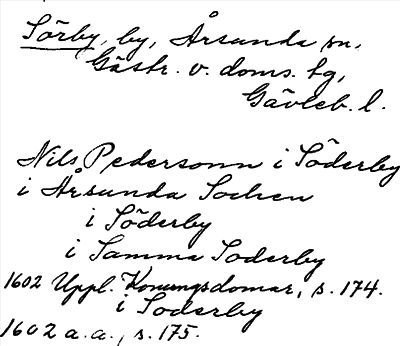 Sörby, by, Årsunda sn,
Gästr. v. doms. tg,
Gävleb. l.
Nils Pedersonn i Söderby
i Årsunda Sochen
i Söderby
i Samma Soderby
1602 Uppl. Konungsdomar, s. 174.
i Soderby
1602 a.a., s. 175.